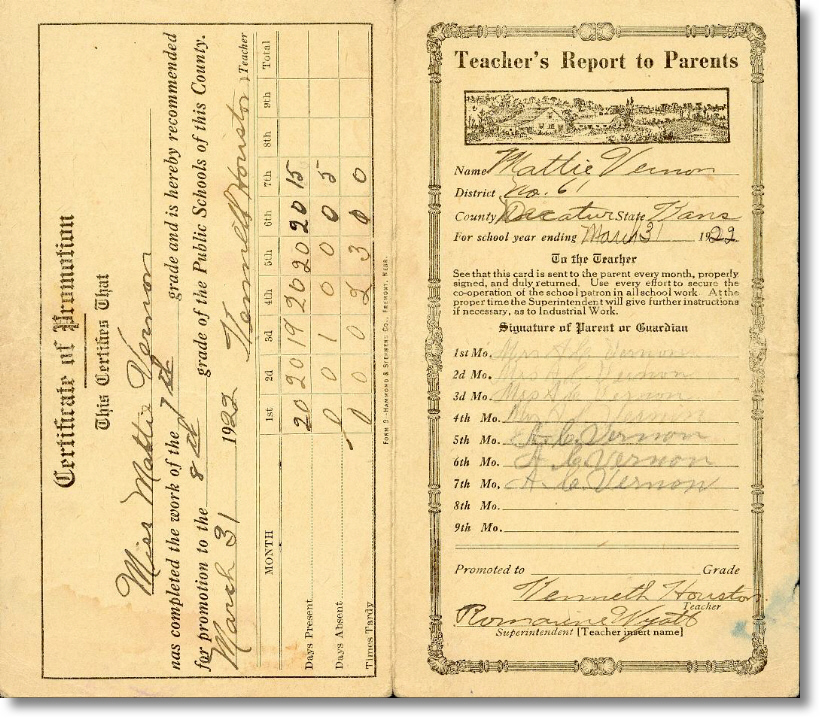 Certificate of Promotion
This Certifies That
Miss Mattie Vernon
has completed the work of the 7th grade and is hereby recommended
for promotion to the 8th grade of the Public Schools of this County.
March 31 1922 Kenneth Houston Teacher
MONTH 1st 2d 3d 4th 5th 6th 7th 8th 9th Total
Days Present 20 20 19 20 20 20 15
Days Absent 0 0 1 0 0 0 5
Times Tardy 0 0 0 3 0 0
FORM 9—HAMMOND & STEPHENS CO., FREMONT, NEBR.
Teacher's Report to Parents
Name Mattie Vernon
District No. 61
County Decatur State Kans
For school year ending March 31 1922
To the Teacher
See that this card is sent to the parent every month, properly
signed, and duly returned. Use every effort to secure the
co-operation of the school patron in all school work. At the
proper time the Superintendent will give further instructions
if necessary, as to Industrial Work.
Signature of Parent or Guardian
1st Mo. Mrs A. C. Vernon
2d Mo. Mrs A. C. Vernon
3d Mo. Mrs A. C. Vernon
4th Mo. Mrs A. C. Vernon
5th Mo. A. C. Vernon
6th Mo. A. C. Vernon
7th Mo. A. C. Vernon
8th Mo.
9th Mo.
Promoted to Grade
Kenneth Houston
Teacher
Romaine Wyatt
Superintendent [Teacher insert name]